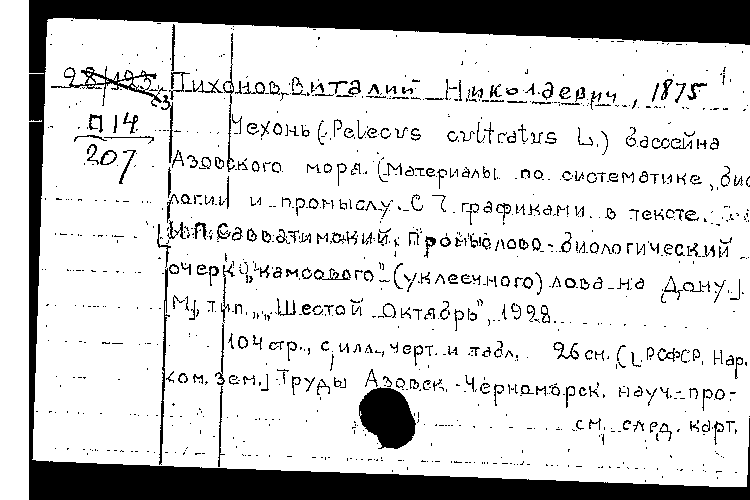 28/123
Тихонов, Виталий Николаевич, 1875
П 14
207
Чехонь (Pelecus cultratus L.) бассейна
Азовского моря. (Материалы по систематике, био
логии и промыслу. С 7 графиками в тексте.
И.П. Савватимский. Промыслово-биологический
очерк „камсового" (уклеечного) лова на Дону.]
[М], тип. „Шестой Октябрь", 1928.
104 стр., с илл., черт. и табл. 26 см. ([РСФСР. Нар.
ком. зем.] Труды Азовск.-Черноморск. науч.-про-
см. след. карт.